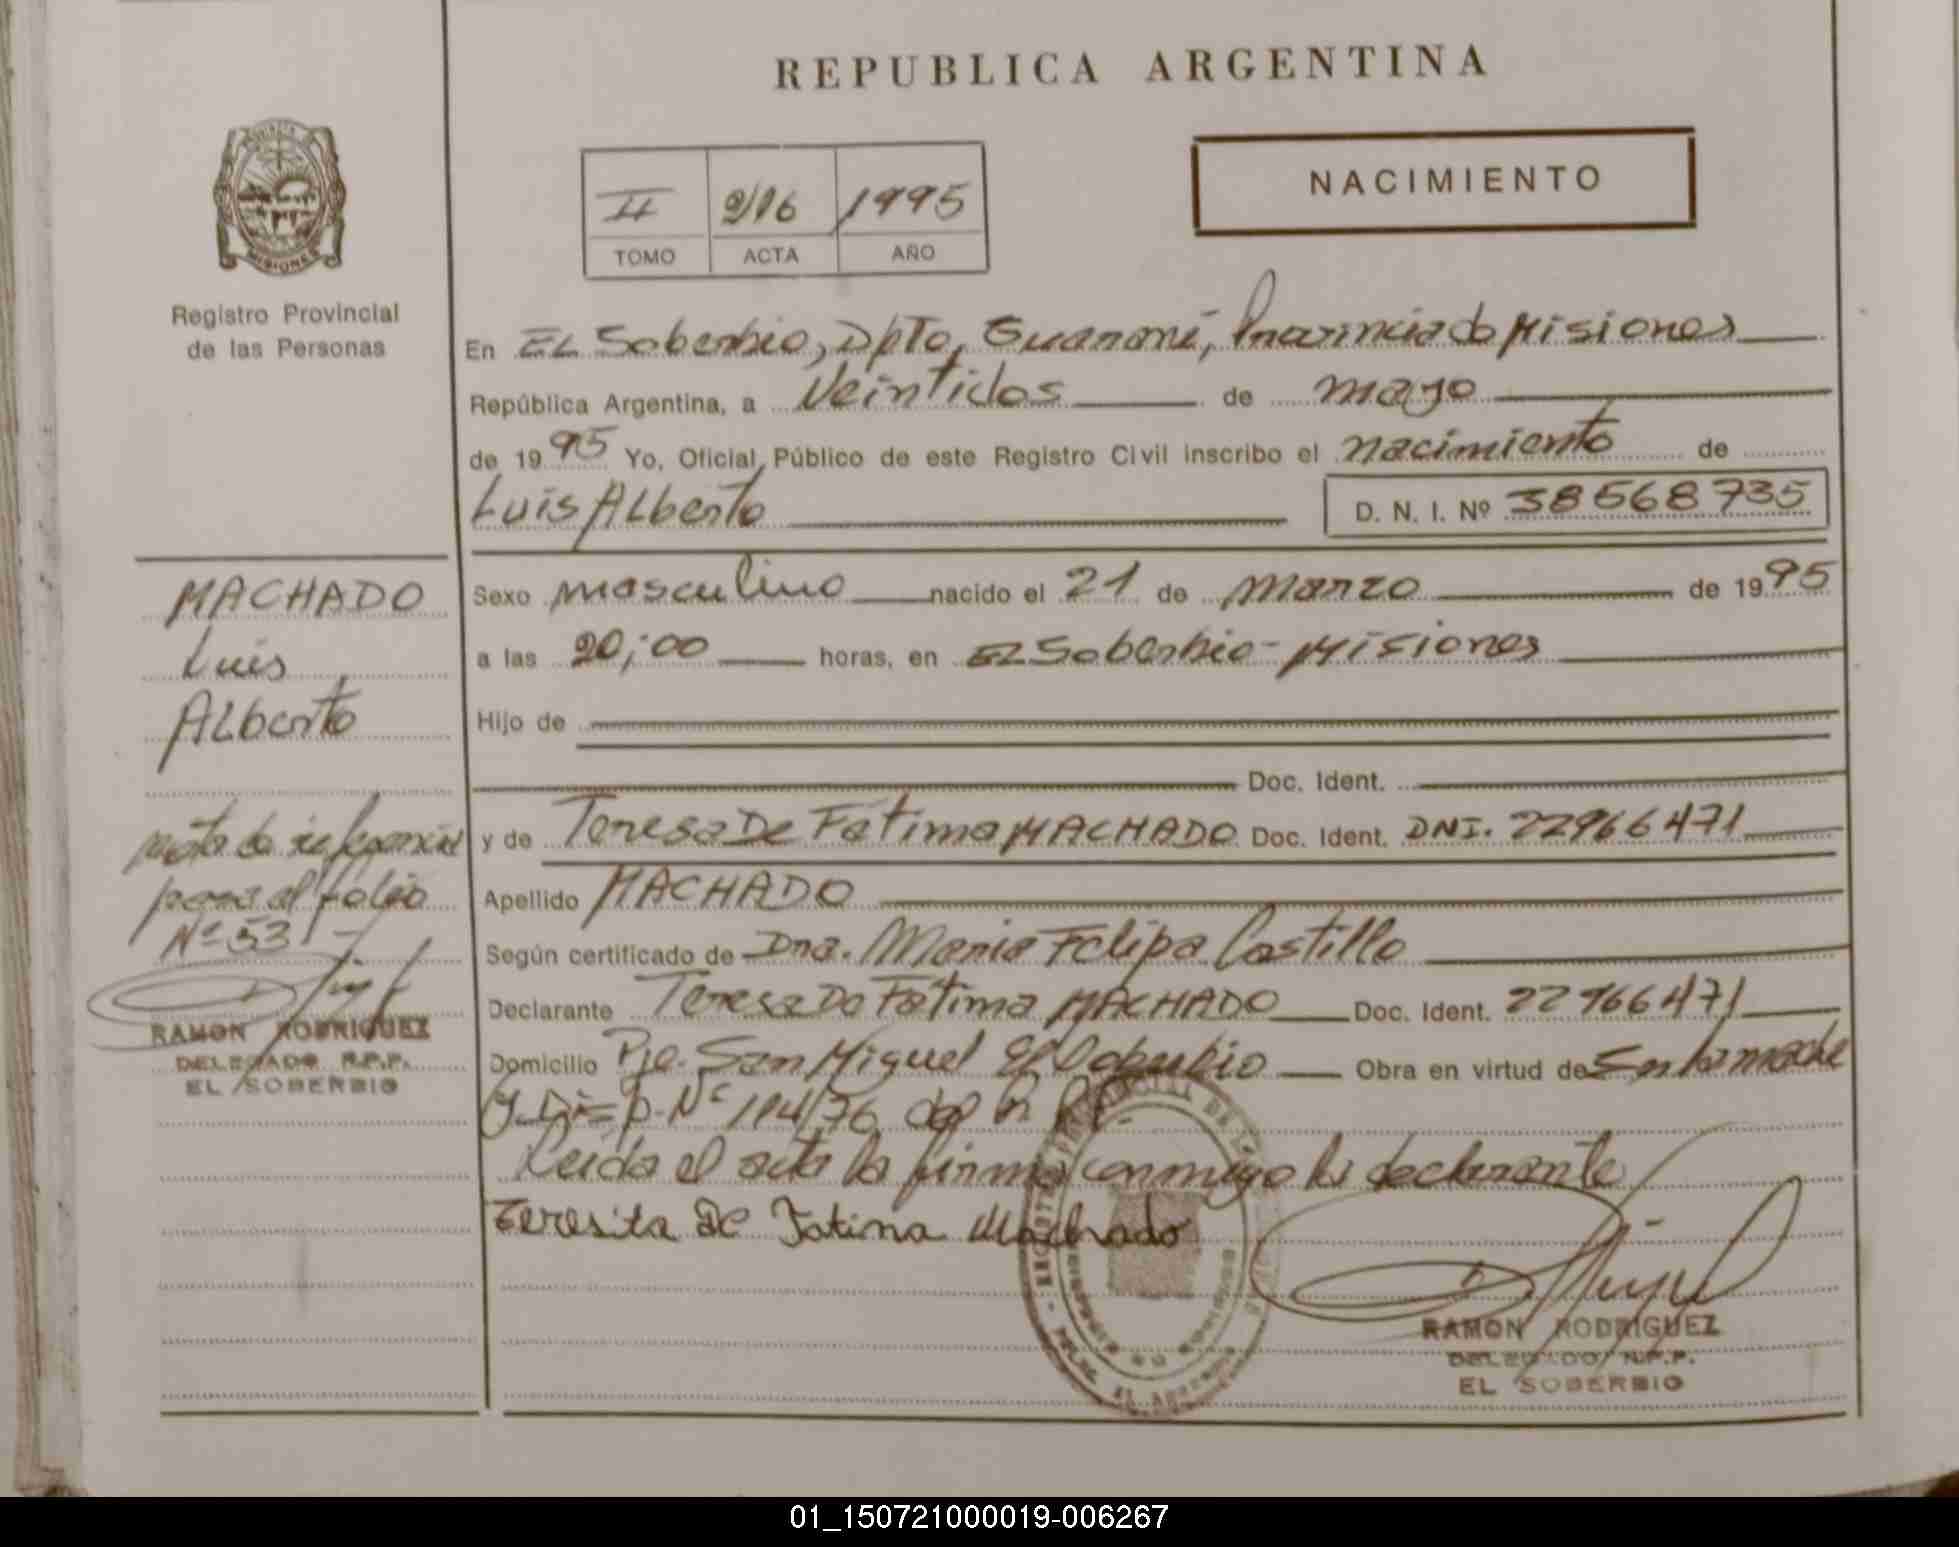 REPUBLICA ARGENTINA
NACIMIENTO
II 216 1995
TOMO ACTA AÑO
MISIONES
Registro Provincial
de las Personas
En EL Soberbio, Dpto, Guaraní, Provincia de Misiones
República Argentina, a Veintidos de mayo
de 1995 Yo, Oficial Público de este Registro Civil inscribo el nacimiento de
Luis Alberto D. N. I. Nº 38568735
Sexo masculino nacido el 21 de Marzo de 1995
a las 20;00 horas, en EL Soberbio - Misiones
Hijo de
Doc. Ident.
y de Teresa De Fatima MACHADO Doc. Ident. DNI. 22966471
Apellido MACHADO
Según certificado de Dna. Maria Felipa Castillo
Declarante Teresa De Fatima MACHADO Doc. Ident. 22966471
Domicilio Pje. San Miguel El Soberbio Obra en virtud de Ser la madre
y Disp. Nº 114/76 del
Leida el acta la firma conmigo la declarante
Teresita De Fatima Machado
RAMON RODRIGUEZ
DELEGADO R.P.P.
EL SOBERBIO
MACHADO
Luis
Alberto
nota de referencia
para el folio
Nº 53
RAMON RODRIGUEZ
DELEGADO R.P.P.
EL SOBERBIO
01_150721000019-006267